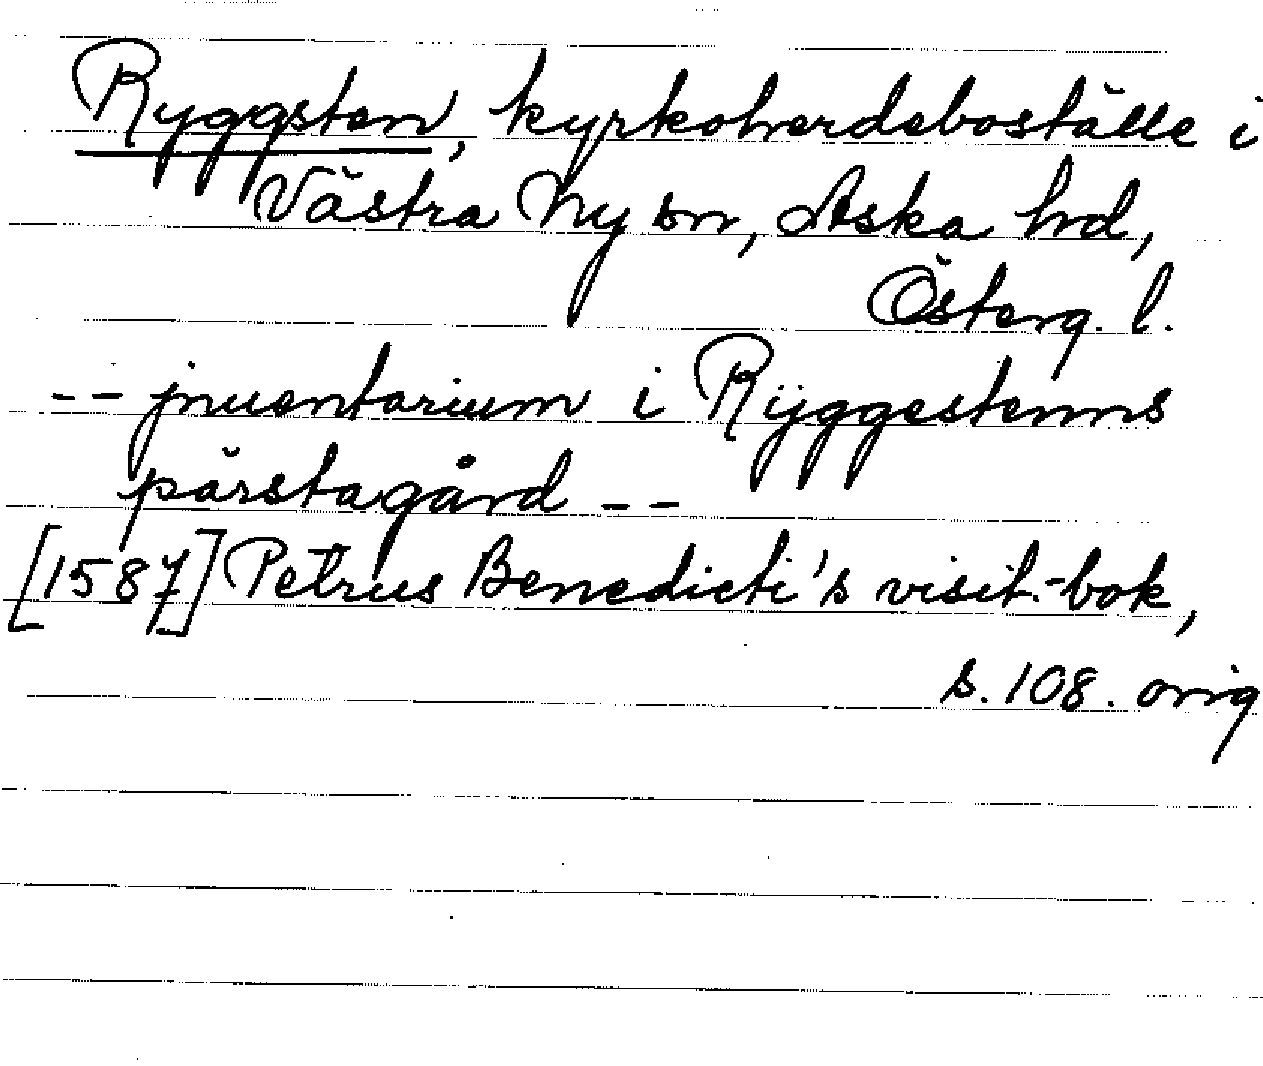 Ryggsten, kyrkoherdeboställe i
Västra Ny sn, Aska hd,
Österg. l.
-- jnuentarium i Rÿggestenns
pärstagård --
[1587] Petrus Benedicti's visit.-bok,
s. 108. orig